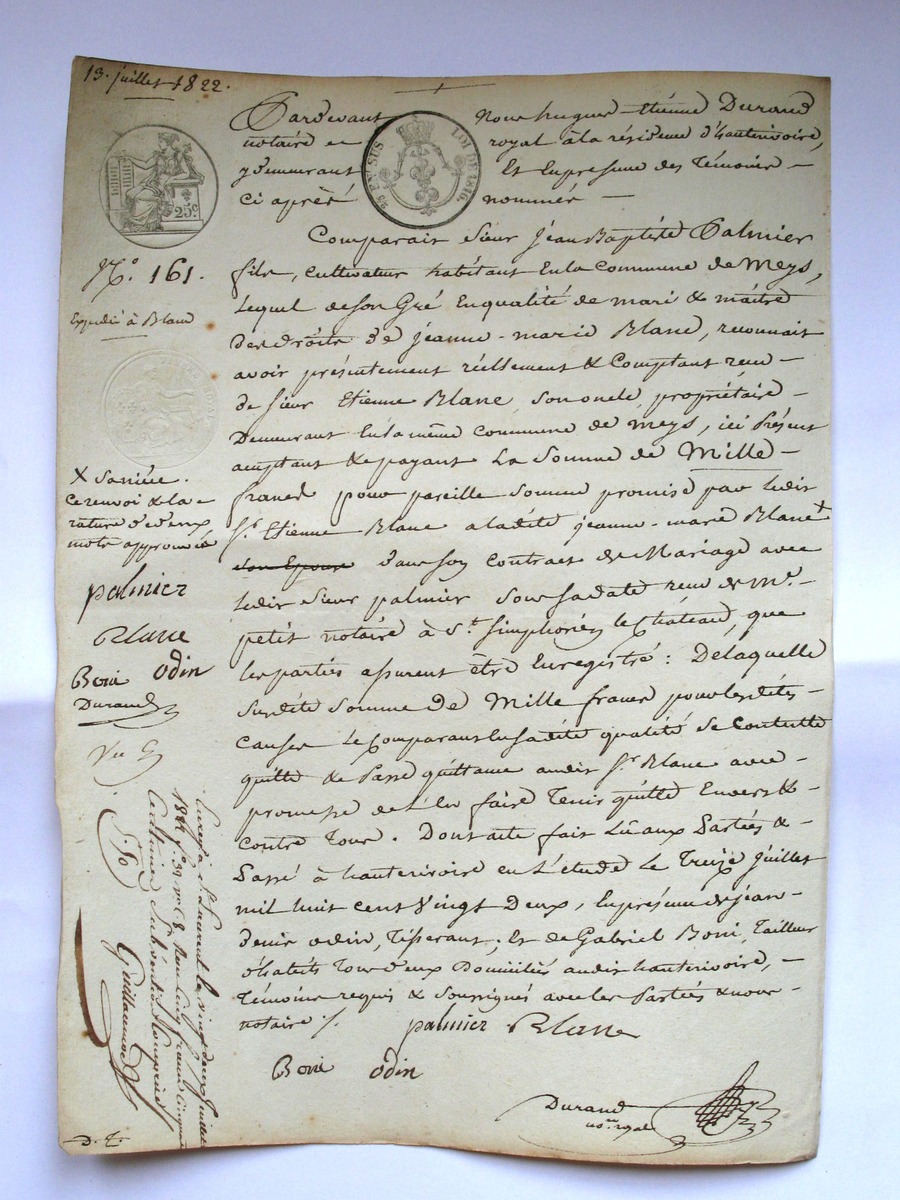 13. juillet 1822.
Pardevant Nous hugues étiénne Durand
notaire royal à la résidence d'hauterivoire,
y demeurant Et En présence des Témoins
Ci après nommés
25 EN SUS LOI DE 1816.
25c
N.o 161.
Expédié à Blanc
Comparait Sieur Jean Baptiste Palmier
fils, cultivateur habitant En la Commune de Meys,
Lequel de son Gré En qualité de mari & maître
des droits de jeanne-marie Blanc, reconnait
avoir présentement réellement & Comptant reçu
de Sieur Etienne Blanc son oncle, propriétaire
Demeurant En la même commune de Meys, ici Présent
acceptant & payant La Somme de Mille
francs pour pareille somme promise par Ledit
Sr. Etienne Blanc a ladite jeanne-marie Blanc X
son Epouse dans son contract de Mariage avec
Ledit Sieur palmier sous sa date reçu de Me.
petit notaire à St. Simphorien le Château, que
les parties assurent être Enregistré : De laquelle
susdite somme de Mille francs pour les dites
causes Le Comparant En sadite qualité se contente
quitte & Passe quittance audit Sr. Blanc avec
promesse de L'En faire Tenir quitte Envers &
contre Tous. Dont acte fait Lû aux Parties &
Passé à hauterivoire en L'étude Le Treize juillet
mil huit cent Vingt Deux, En présence de jean
denis odin, Tisserant; Et de Gabriel Boni, Tailleur
d'habits Tous deux Domiciliés audit hauterivoire,
Témoins requis & Soussignés avec les Parties & nous
notaire ./.
palmier Blanc
Boni odin
Durand
no.re royal
X Sa nièce.
Ce renvoi & la
rature d'deux
mots approuvés
palmier
Blanc
Boni odin
Durand
Enreg. à St. Laurent le vingt deux juillet
centimes Subvention Comprise
Guillaumot
D. T.